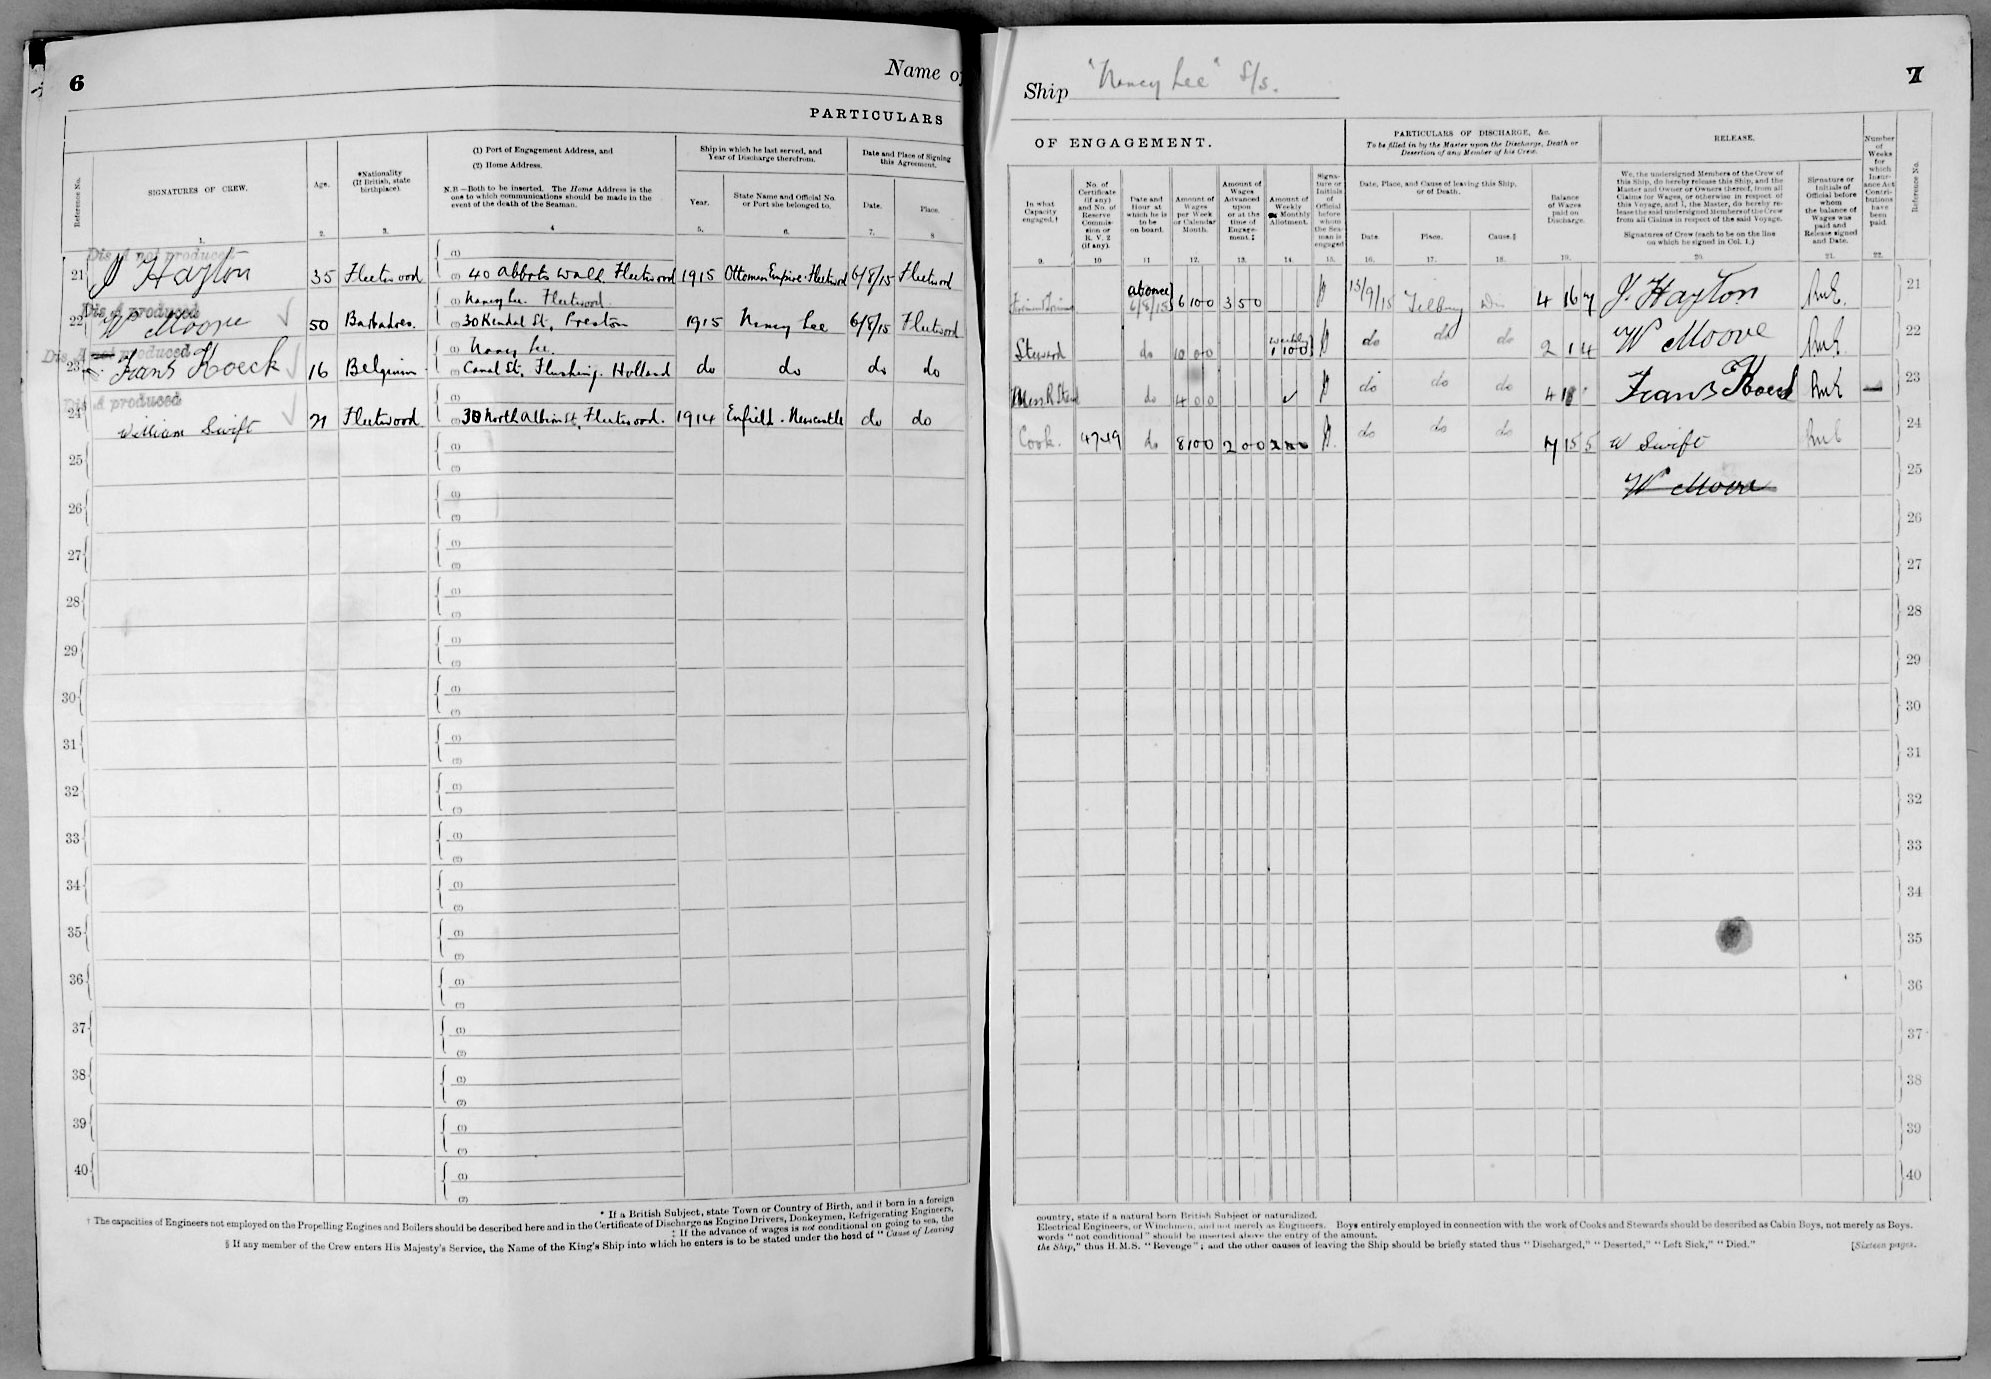 6
Name of
PARTICULARS
Reference No.
SIGNATURES OF CREW.
Age.
*Nationality
(If British, state
birthplace).
(1) Port of Engagement Address, and
(2) Home Address.
N.B.—Both to be inserted. The Home Address is the
one to which communications should be made in the
event of the death of the Seaman.
Ship in which he last served, and
Year of Discharge therefrom.
Year.
State Name and Official No.
or Port she belonged to.
Date and Place of Signing
this Agreement.
Date.
Place.
1. 2. 3. 4 5. 6. 7. 8
Dis. A not produced
21 J Hayton 35 Fleetwood (1)
(2) 40 Abbots Walk Fleetwood 1915 Ottoman Empire - Fleetwood 6/8/15 Fleetwood
Dis. A produced
22 W Moore 50 Barbadoes. (1) Nancy Lee. Fleetwood.
(2) 30 Kendal St, Preston 1915 Nancy Lee 6/8/15 Fleetwood
Dis. A not produced
23 Frans Koeck 16 Belgium (1) Nancy Lee.
(2) Canal St, Flushing. Holland do do do do
Dis A produced
24 William Swift 21 Fleetwood (1)
(2) North Albion St, Fleetwood. 1914 Enfield - Newcastle do do
25 (1)
(2)
26 (1)
(2)
27 (1)
(2)
28 (1)
(2)
29 (1)
(2)
30 (1)
(2)
31 (1)
(2)
32 (1)
(2)
33 (1)
(2)
34 (1)
(2)
35 (1)
(2)
36 (1)
(2)
37 (1)
(2)
38 (1)
(2)
39 (1)
(2)
40 (1)
(2)
* If a British Subject, state Town or Country of Birth, and if born in a foreign
† The capacities of Engineers not employed on the Propelling Engines and Boilers should be described here and in the Certificate of Discharge as Engine Drivers, Donkeymen, Refrigerating Engineers,
‡ If the advance of wages is not conditional on going to sea, the
§ If any member of the Crew enters His Majesty's Service, the Name of the King's Ship into which he enters is to be stated under the head of "Cause of Leaving
7
Ship "Nancy Lee" S/s.
OF ENGAGEMENT.
PARTICULARS OF DISCHARGE, &c.
To be filled in by the Master upon the Discharge, Death or
Desertion of any Member of his Crew.
RELEASE.
Number
of
Weeks
for
which
Insur-
ance Act
Contri-
butions
have
been
paid.
Reference No.
In what
Capacity
engaged.†
No. of
Certificate
(if any)
and No. of
Reserve
Commis-
sion or
R. V. 2
(if any).
Date and
Hour at
which he is
to be
on board.
Amount of
Wages
per Week
or Calendar
Month.
Amount of
Wages
Advanced
upon
or at the
time of
Engage-
ment.‡
Amount of
Weekly
or Monthly
Allotment.
Signa-
ture or
Initials
of
Official
before
whom
the Sea-
man is
engaged
Date, Place, and Cause of leaving this Ship,
or of Death.
Date.
Place.
Cause.§
Balance
of Wages
paid on
Discharge.
We, the undersigned Members of the Crew of
this Ship, do hereby release this Ship, and the
Master and Owner or Owners thereof, from all
Claims for Wages, or otherwise in respect of
this Voyage, and I, the Master, do hereby re-
lease the said undersigned Members of the Crew
from all Claims in respect of the said Voyage.
Signatures of Crew (each to be on the line
on which he signed in Col. 1.)
Signature or
Initials of
Official before
whom
the balance of
Wages was
paid and
Release signed
and Date.
9. 10 11 12. 13. 14. 15. 16. 17. 18. 19. 20. 21. 22.
at once 6/8/15 6 10 0 3 5 0 13/9/15 Tilbury Dis 4 16 7 J. Hayton 21
Steward do 10 0 0 weekly 1 10 0 do do do 2 1 4 W Moore 22
do 4 0 0 do do do Frans Koeck 23
Cook. 4749 do 8 10 0 2 0 0 do do do 7 15 5 W Swift 24
W Moore 25
26
27
28
29
30
31
32
33
34
35
36
37
38
39
40
country, state if a natural born British Subject or naturalized.
Electrical Engineers, or Winchmen, and not merely as Engineers. Boys entirely employed in connection with the work of Cooks and Stewards should be described as Cabin Boys, not merely as Boys.
words "not conditional" should be inserted above the entry of the amount.
the Ship," thus H.M.S. "Revenge"; and the other causes of leaving the Ship should be briefly stated thus "Discharged," "Deserted," "Left Sick," "Died."
[Sixteen pages.